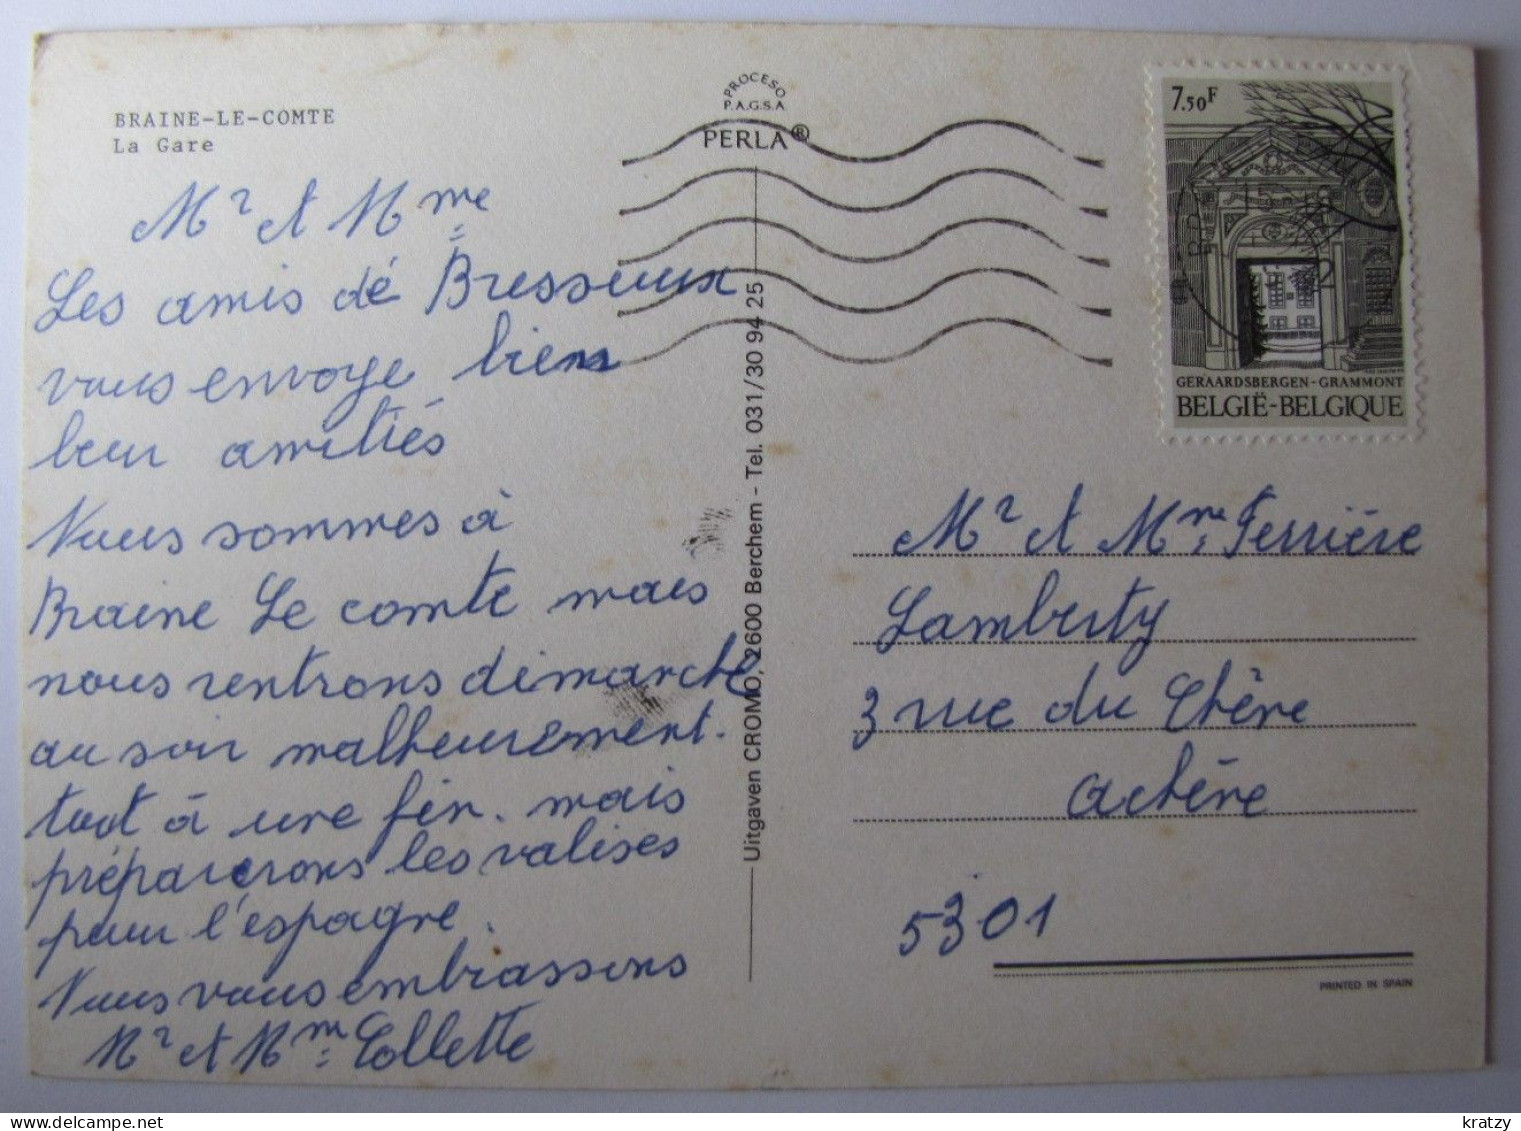 BRAINE-LE-COMTE
La Gare
PROCESO
P.A.G.S.A
PERLA®
7.50F
GERAARDSBERGEN-GRAMMONT
BELGIË-BELGIQUE
Mr et Mme
Les amis dé Bresseux
vous envoye bien
leur amitiés
Nous sommes à
Braine Le comte mais
nous rentrons dimanche
au soir malheureument.
tout à une fin. mais
préparerons les valises
pour l'espagne.
Nous vous embrassons
Mr et Mm Collette
Uitgaven CROMO, 2600 Berchem - Tel. 031/30 94 25
Mr et Mme Ferrière
Lamberty
3 rue du Chêne
Achêne
5301
PRINTED IN SPAIN
kratzy